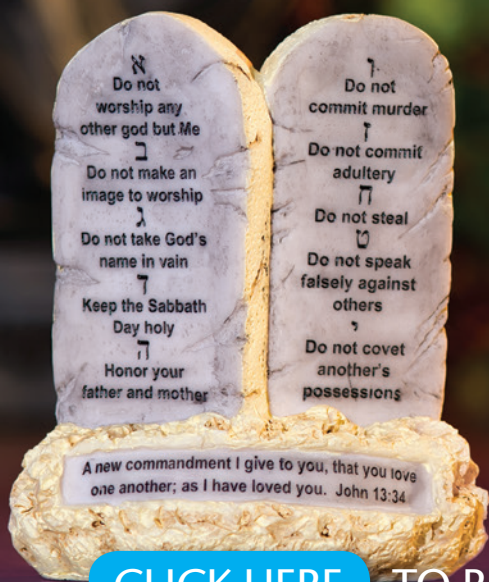 א
Do not
worship any
other god but Me
ב
Do not make an
image to worship
ג
Do not take God's
name in vain
ד
Keep the Sabbath
Day holy
ה
Honor your
father and mother
ו
Do not
commit murder
ז
Do not commit
adultery
ח
Do not steal
ט
Do not speak
falsely against
others
י
Do not covet
another's
possessions
A new commandment I give to you, that you love
one another; as I have loved you. John 13:34
CLICK HERE TO